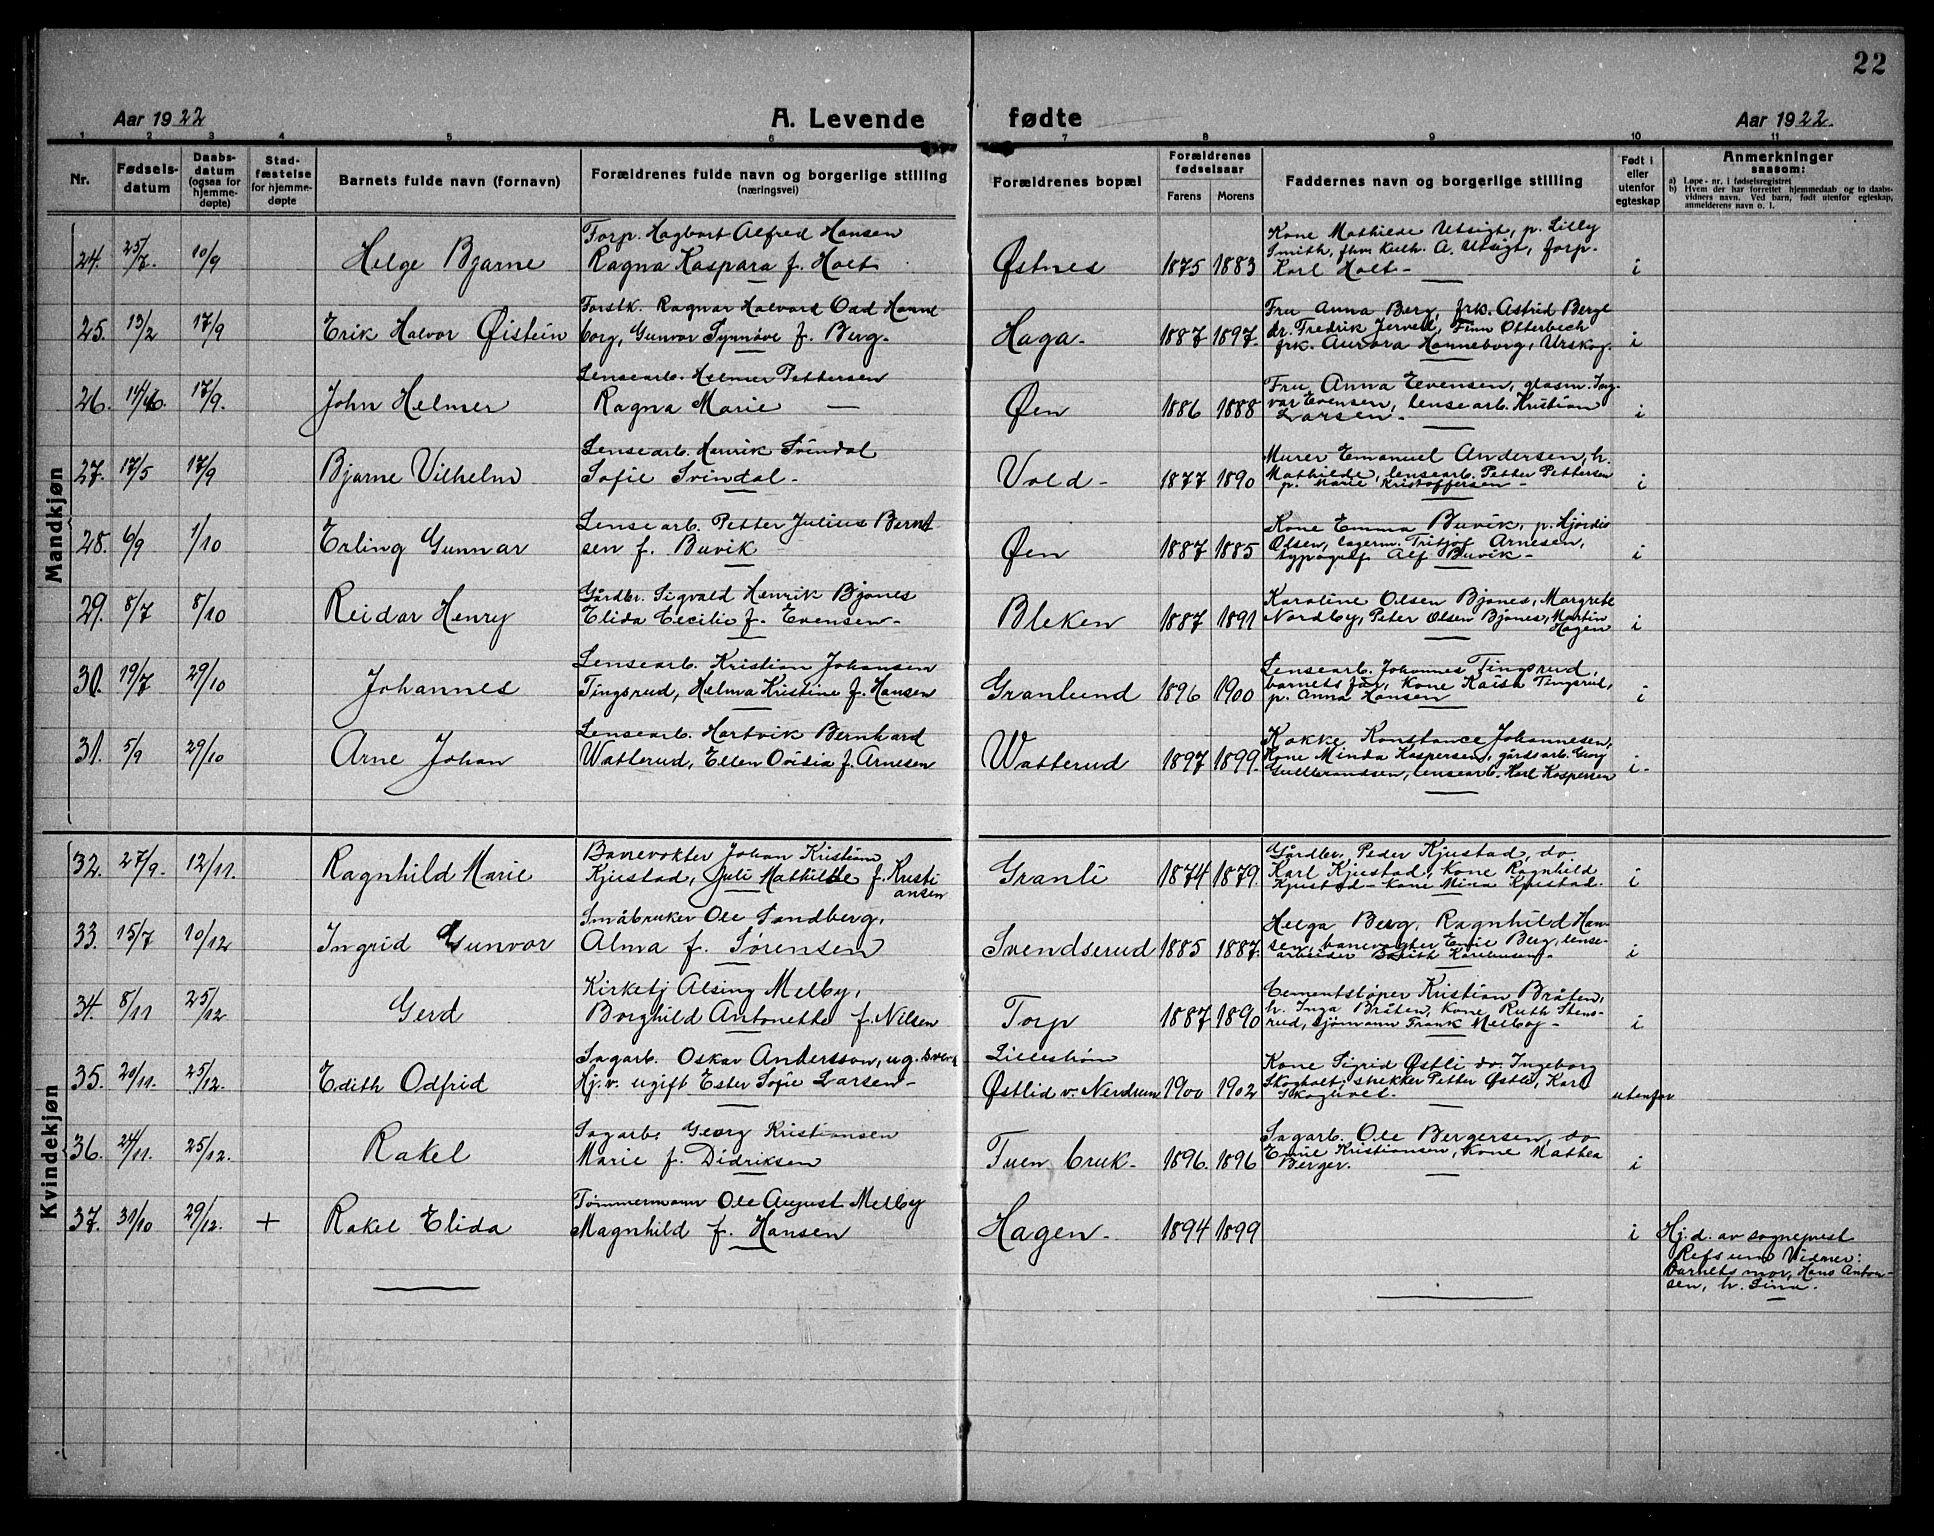 22
Aar 1922
A. Levende
fødte
Aar 1922.
1 2 3 4 5 6 7 8 9 10 11
Nr.
Fødsels-
datum
Daabs-
datum
(ogsaa for
hjemme-
døpte)
Stad-
fæstelse
for hjemme-
døpte
Barnets fulde navn (fornavn)
Forældrenes fulde navn og borgerlige stilling
(næringsvei)
Forældrenes bopæl
Forældrenes
fødselsaar
Farens
Morens
Faddernes navn og borgerlige stilling
Født i
eller
utenfor
egteskap
Anmerkninger
saasom:
a) Løpe-nr. i fødselsregistret
b) Hvem der har forrettet hjemmedaab og to daabs-
vidners navn. Ved barn, født utenfor egteskap,
anmelderens navn o. l.
Mandkjøn
24. 25/7. 10/9 Helge Bjarne
Forp. Hagbart Alfred Hansen
Ragna Kaspara f. Holt
Østnes 1875 1883
Kone Mathilde Utsigt, p. Lilly
Smith, A. Utsigt, forp.
Karl Holt-
i
25. 13/2 17/9 Erik Halvor Øistein
Forstk. Ragnar Halvord Oad Hanne
borg, Gunvor Synnøve f. Berg-
Haga- 1887 1897.
Fru Anna Berg, frk. Astrid Berg
dr. Fredrik Finn Otterbech
frk. Aurora Hanneborg, Urskog.
i
26. 14/6. 17/9. John Helmer
Lensearb. Helmer Pettersen
Ragna Marie —
Øen 1886 1888
Fru Anna Evensen, glasm. Ing-
var Evensen, lensearb. Kristian
Larsen-
i
27. 17/5 17/9 Bjarne Vilhelm
Lensearb. Henrik Svindal
Sofie Svindal-
Vold- 1877 1890
Murer Emanuel Andersen, h.
Mathilde, lensearb. Petter Pettersen
p. Marie Kristoffersen-
i
28. 6/9 1/10 Erling Gunnar
Lensearb. Petter Julius Bernt
sen f. Buvik
Øen 1887 1885
Kone Emma Buvik, p. Hjørdis
Olsen, lagerm. Tritjof Arnesen,
typograf Alf Buvik-
i
29. 8/7 8/10 Reidar Henry
Gårdbr. Sigvald Henrik Bjønes
Elida Cecilie f. Evensen-
Bleken 1887 1891
Karoline Olsen Bjønes, Margrete
Nordby, Peter Olsen Bjønes, Martin
Hagen
i
30. 19/7 29/10 Johannes
Lensearb. Kristian Johansen
Tingsrud, Helma Kristine f. Hansen
Granlund 1896 1900
Lensearb. Johannes Tingsrud,
barnets far, kone Kaisa Tingsrud,
p. Anna Hansen
i
31. 5/9 29/10 Arne Johan
Lensearb. Hartvik Bernhard
Watterud, Ellen Ovidia f. Arnesen
Watterud 1897 1899.
Kokke Konstance Johannesen,
Kone Minda Kaspersen, gårdsarb. Georg
Gulbrandsen, lensearb. Karl Kaspersen
i-
Kvindekjøn
32. 27/9. 12/11. Ragnhild Marie
Banevokter Johan Kristian
Kjustad, Juli Mathilde f. Kristi
ansen
Granli 1874 1879.
Gårdbr. Peder Kjustad, do
Karl Kjustad, kone Ragnhild
Kjustad- kone Mina Kjustad.
i
33. 15/7 10/12 Ingrid Gunvor
Småbruker Ole Sandberg,
Alma f. Sørensen
Svendserud 1885 1887.
Helga Berg, Ragnhild Han-
sen, banevogter Emil Berg, lense-
arbeider
i
34. 8/11 25/12 Gerd
Kirketj Alsing Melby,
Borghild Antonette f. Nilsen
Torp 1887 1890
Cementstøper Kristian Bråten,
h. Inga Bråten, kone Ruth Stens-
rud, sjømann Frank Melby-
i
35. 20/11. 25/12. Edith Odfrid
Sagarb. Oskar Andersson, ug.
Hj.v. ugift Ester Sofie Larsen-
Lillestrøm
Østlid v. Nerdrum 1900 1902
Kone Sigrid Østli do. Ingeborg
Skogholt, strekker Petter Østli, Karl
Skogholt.
utenfor
36. 24/11. 25/12. Rakel
Sagarb. Georg Kristiansen
Marie f. Didriksen
Tuen bruk- 1896. 1896
Sagarb. Ole Bergersen, do
Emil Kristiansen, kone Mathea
Berger.
i
37. 31/10 29/12. + Rakel Elida
Tømmermann Ole August Melby
Magnhild f. Hansen
Hagen- 1894 1899
i
Hj.d. av sogneprest
Refsum Vidner:
Barnets mor, Hans Anton-
sen, h. Lina.